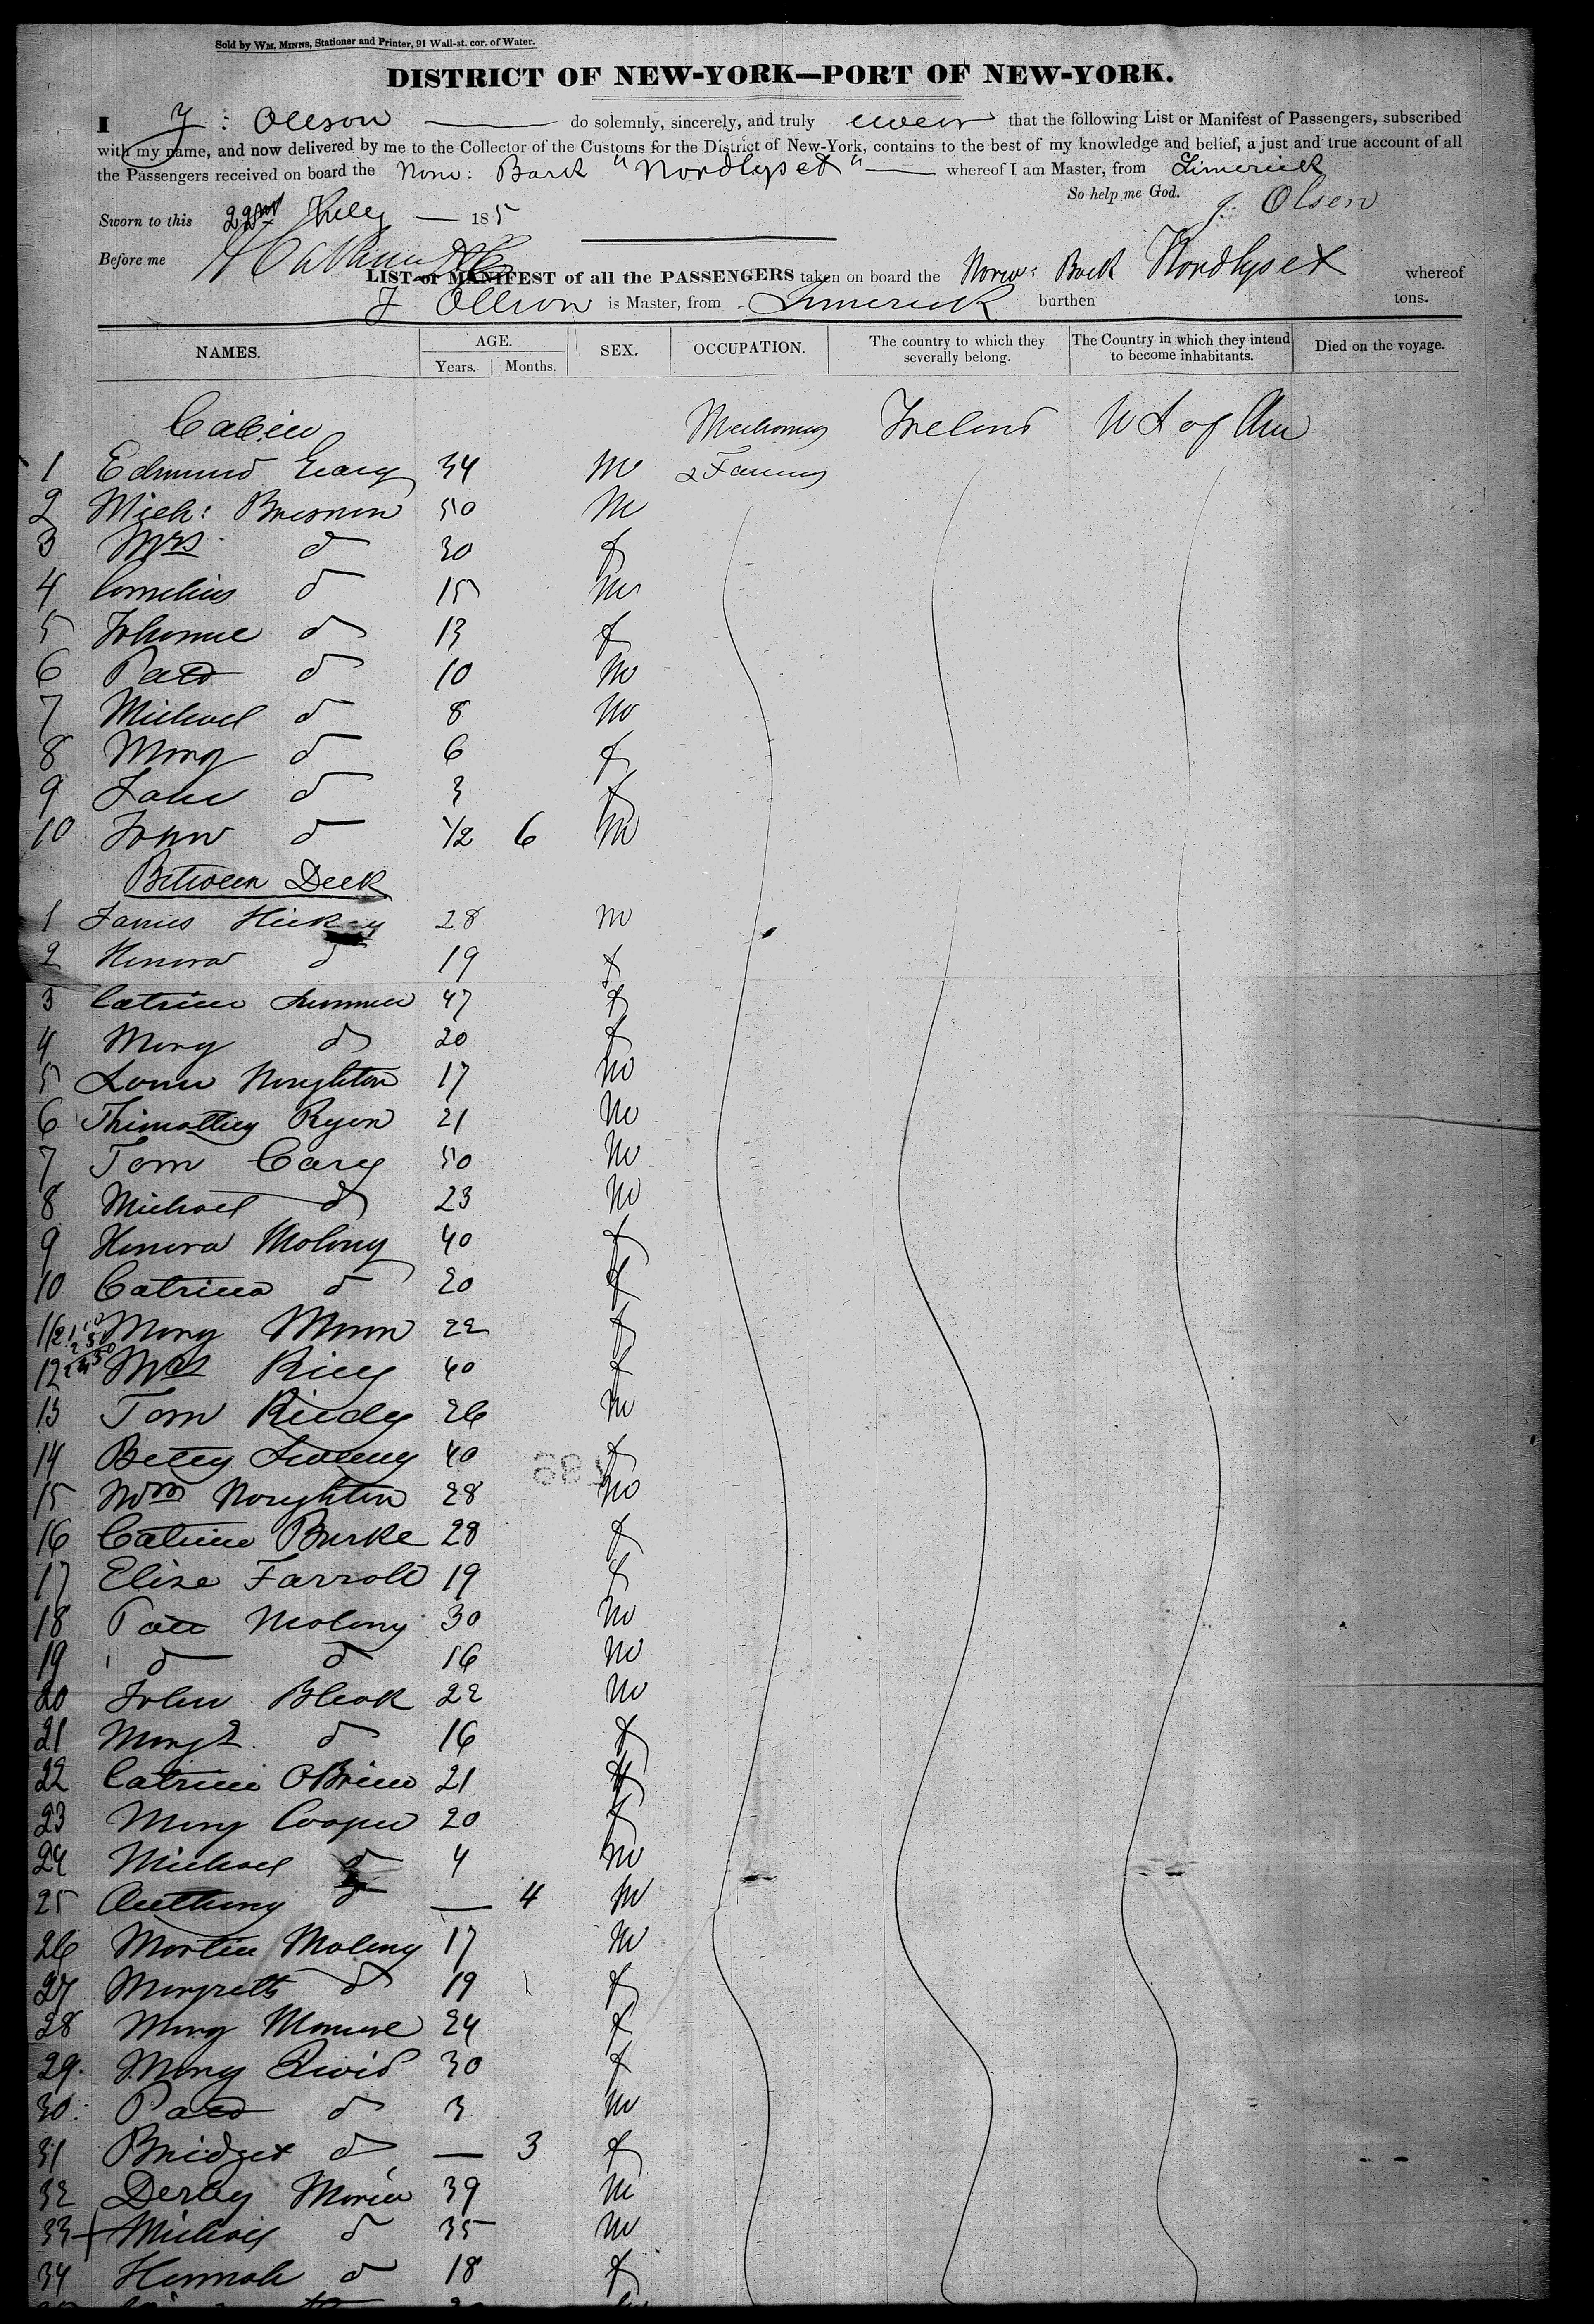 Sold by WM. MINNS, Stationer and Printer, 91 Wall-st. cor. of Water.
DISTRICT OF NEW-YORK—PORT OF NEW-YORK.
I J: Ollson do solemnly, sincerely, and truly swear that the following List or Manifest of Passengers, subscribed
with my name, and now delivered by me to the Collector of the Customs for the District of New-York, contains to the best of my knowledge and belief, a just and true account of all
the Passengers received on board the Norw: Bark "Nordlyset" whereof I am Master, from Limerick
So help me God.
Sworn to this 22nd July 185 J. Olsen
Before me
LIST or MANIFEST of all the PASSENGERS taken on board the Norw: Bark Nordlyset whereof
J Ollson is Master, from Limerick burthen tons.
NAMES. AGE. Years. Months. SEX. OCCUPATION. The country to which they severally belong. The Country in which they intend to become inhabitants. Died on the voyage.
Cabin Ireland U S of Am
1 Edmund Geary 34 m & Farmers
2 Mich: Bresnen 50 m
3 Mrs d 30 f
4 Cornelius d 15 m
5 d 13 f
6 Patt d 10 m
7 Michael d 8 m
8 Mary d 6 f
9 d 3 f
10 John d 1/2 6 m
Between Deck
1 James Hickey 28 m
2 Honora d 19 f
3 Catrine 47 f
4 Mary d 20 f
5 Noughton 17 m
6 Thimothey Ryon 21 m
7 Tom Carey 50 m
8 Michael d 23 m
9 Honora Molony 40 f
10 Catrina d 20 f
11 Mary 22 f
12 Mrs 40 f
13 Tom Riedy 26 m
14 Betty 40 f
15 Wm Noughton 28 m
16 Catrine Burke 28 f
17 Elise Farroll 19 f
18 Patt Molony 30 m
19 d d 16 m
20 John Bleak 22 m
21 Margt d 16 f
22 Catrine OBrien 21 f
23 Mary Cooper 20 f
24 Michael d 4 m
25 Anthony d — 4 m
26 Martin Molony 17 m
27 Margrett d 19 f
28 Mary 24 f
29. Mary 30 f
30. Patt d 3 m
31 Bridget d — 3 f
32 Derby 39 m
33 Michael d 35 m
34 Hannah d 18 f